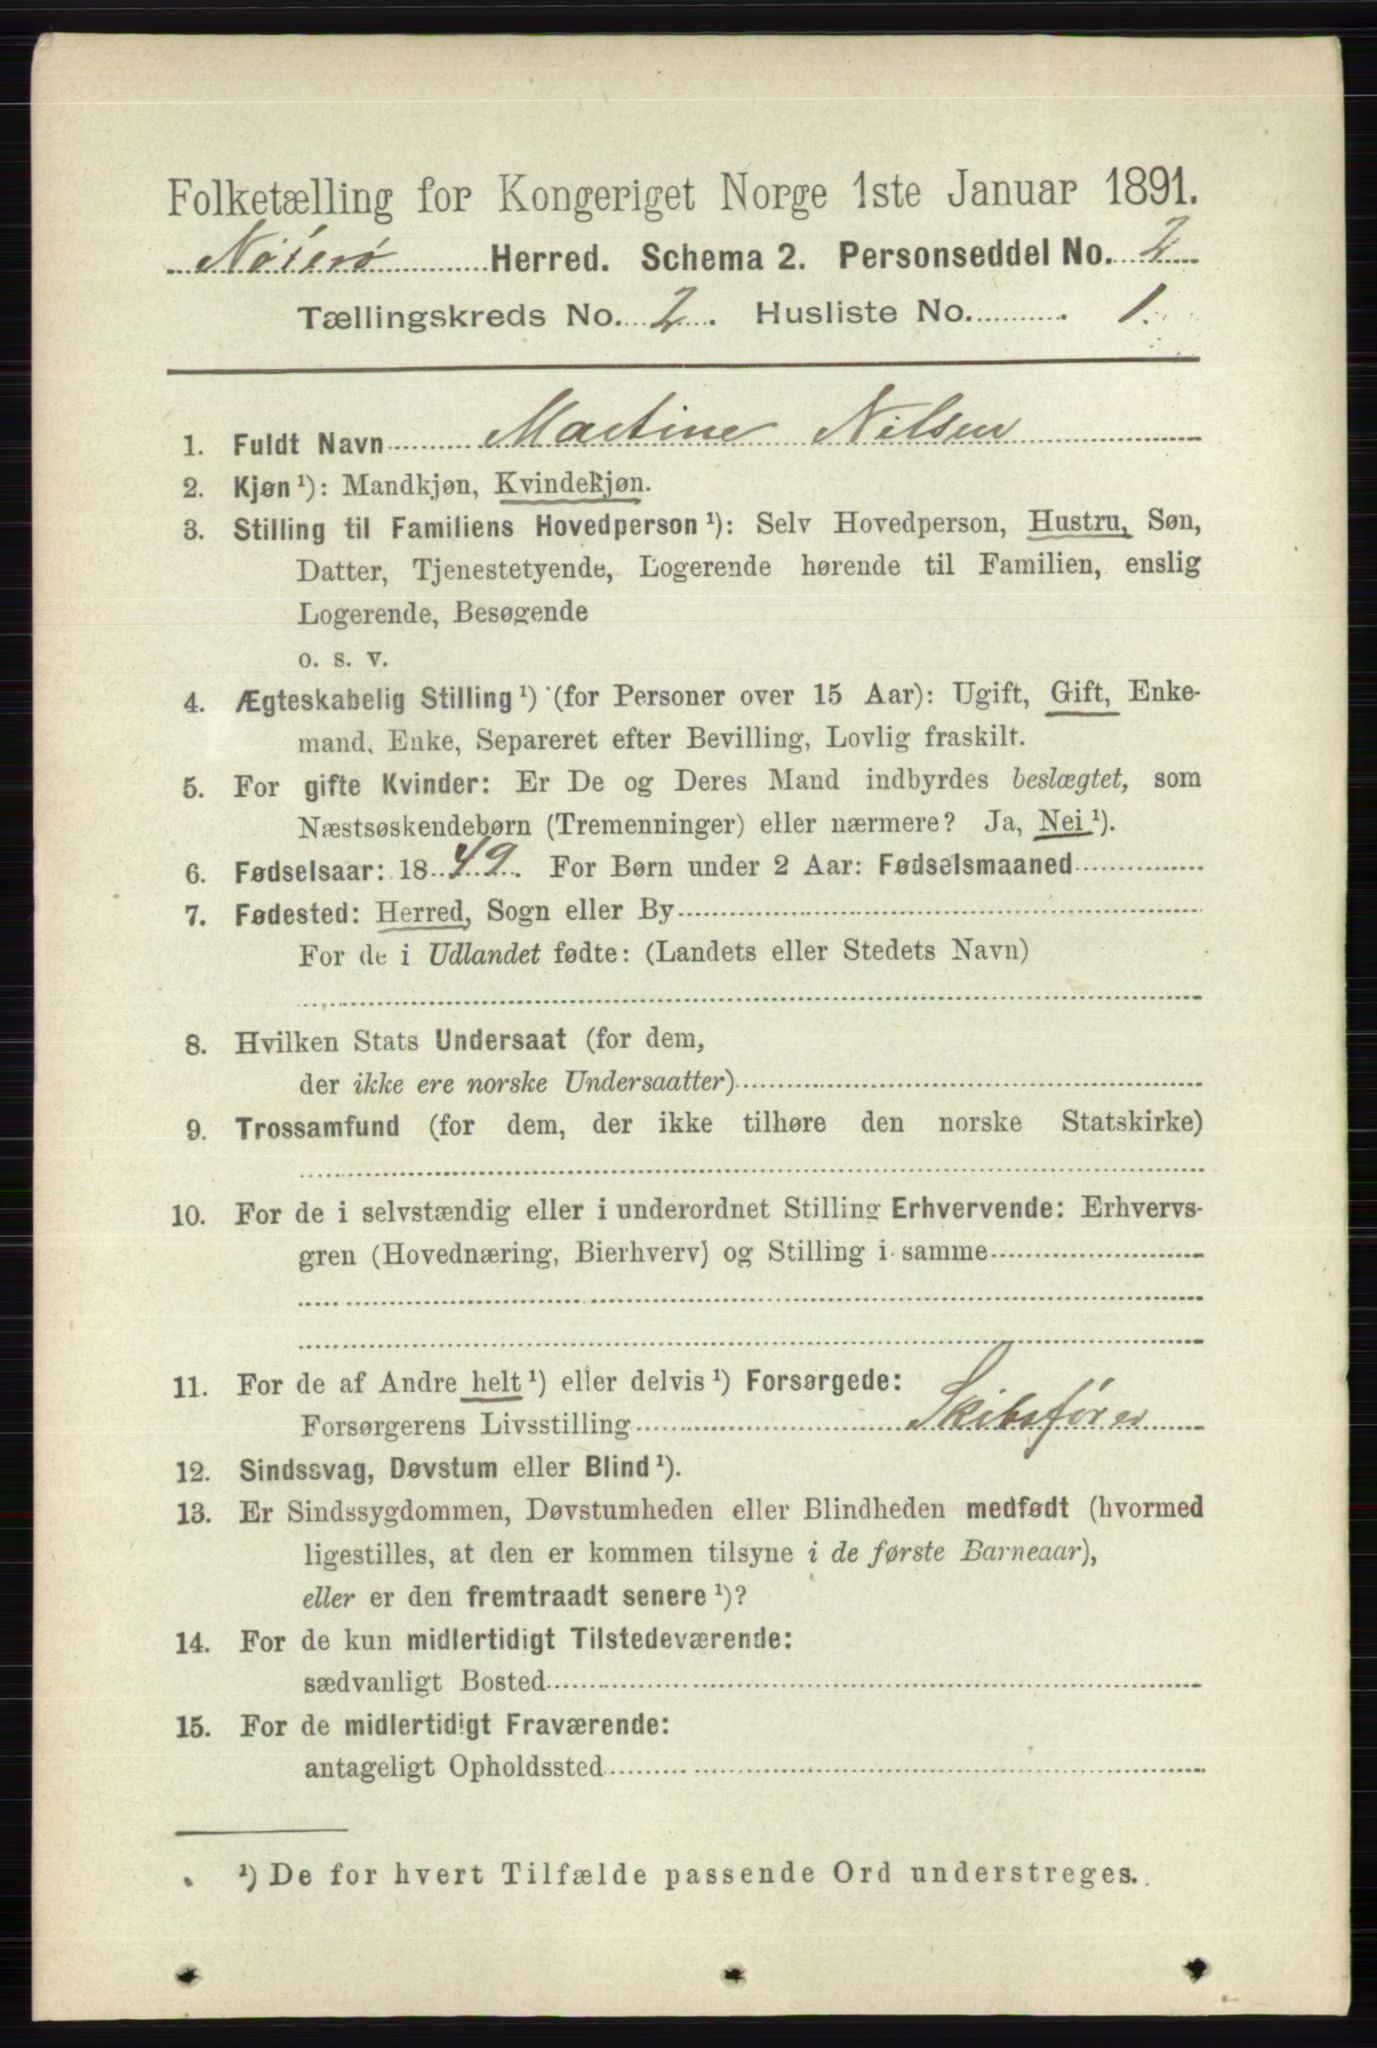 Folketælling for Kongeriget Norge 1ste Januar 1891.
Nøterø Herred. Schema 2. Personseddel No. 2
Tællingskreds No. 2. Husliste No. 1.
1. Fuldt Navn Martine Nilsen
2. Kjøn ¹): Mandkjøn, Kvindekjøn.
3. Stilling til Familiens Hovedperson ¹): Selv Hovedperson, Hustru, Søn,
Datter, Tjenestetyende, Logerende hørende til Familien, enslig
Logerende, Besøgende
o. s. v.
4. Ægteskabelig Stilling ¹) (for Personer over 15 Aar): Ugift, Gift, Enke-
mand, Enke, Separeret efter Bevilling, Lovlig fraskilt.
5. For gifte Kvinder: Er De og Deres Mand indbyrdes beslægtet, som
Næstsøskendebørn (Tremenninger) eller nærmere? Ja, Nei ¹).
6. Fødselsaar: 1849. For Børn under 2 Aar: Fødselsmaaned
7. Fødested: Herred, Sogn eller By
For de i Udlandet fødte: (Landets eller Stedets Navn)
8. Hvilken Stats Undersaat (for dem,
der ikke ere norske Undersaatter)
9. Trossamfund (for dem, der ikke tilhøre den norske Statskirke)
10. For de i selvstændig eller i underordnet Stilling Erhvervende: Erhvervs-
gren (Hovednæring, Bierhverv) og Stilling i samme
11. For de af Andre helt ¹) eller delvis ¹) Forsørgede:
Forsørgerens Livsstilling Skibsfører
12. Sindssvag, Døvstum eller Blind ¹).
13. Er Sindssygdommen, Døvstumheden eller Blindheden medfødt (hvormed
ligestilles, at den er kommen tilsyne i de første Barneaar),
eller er den fremtraadt senere ¹)?
14. For de kun midlertidigt Tilstedeværende:
sædvanligt Bosted
15. For de midlertidigt Fraværende:
antageligt Opholdssted
¹) De for hvert Tilfælde passende Ord understreges.